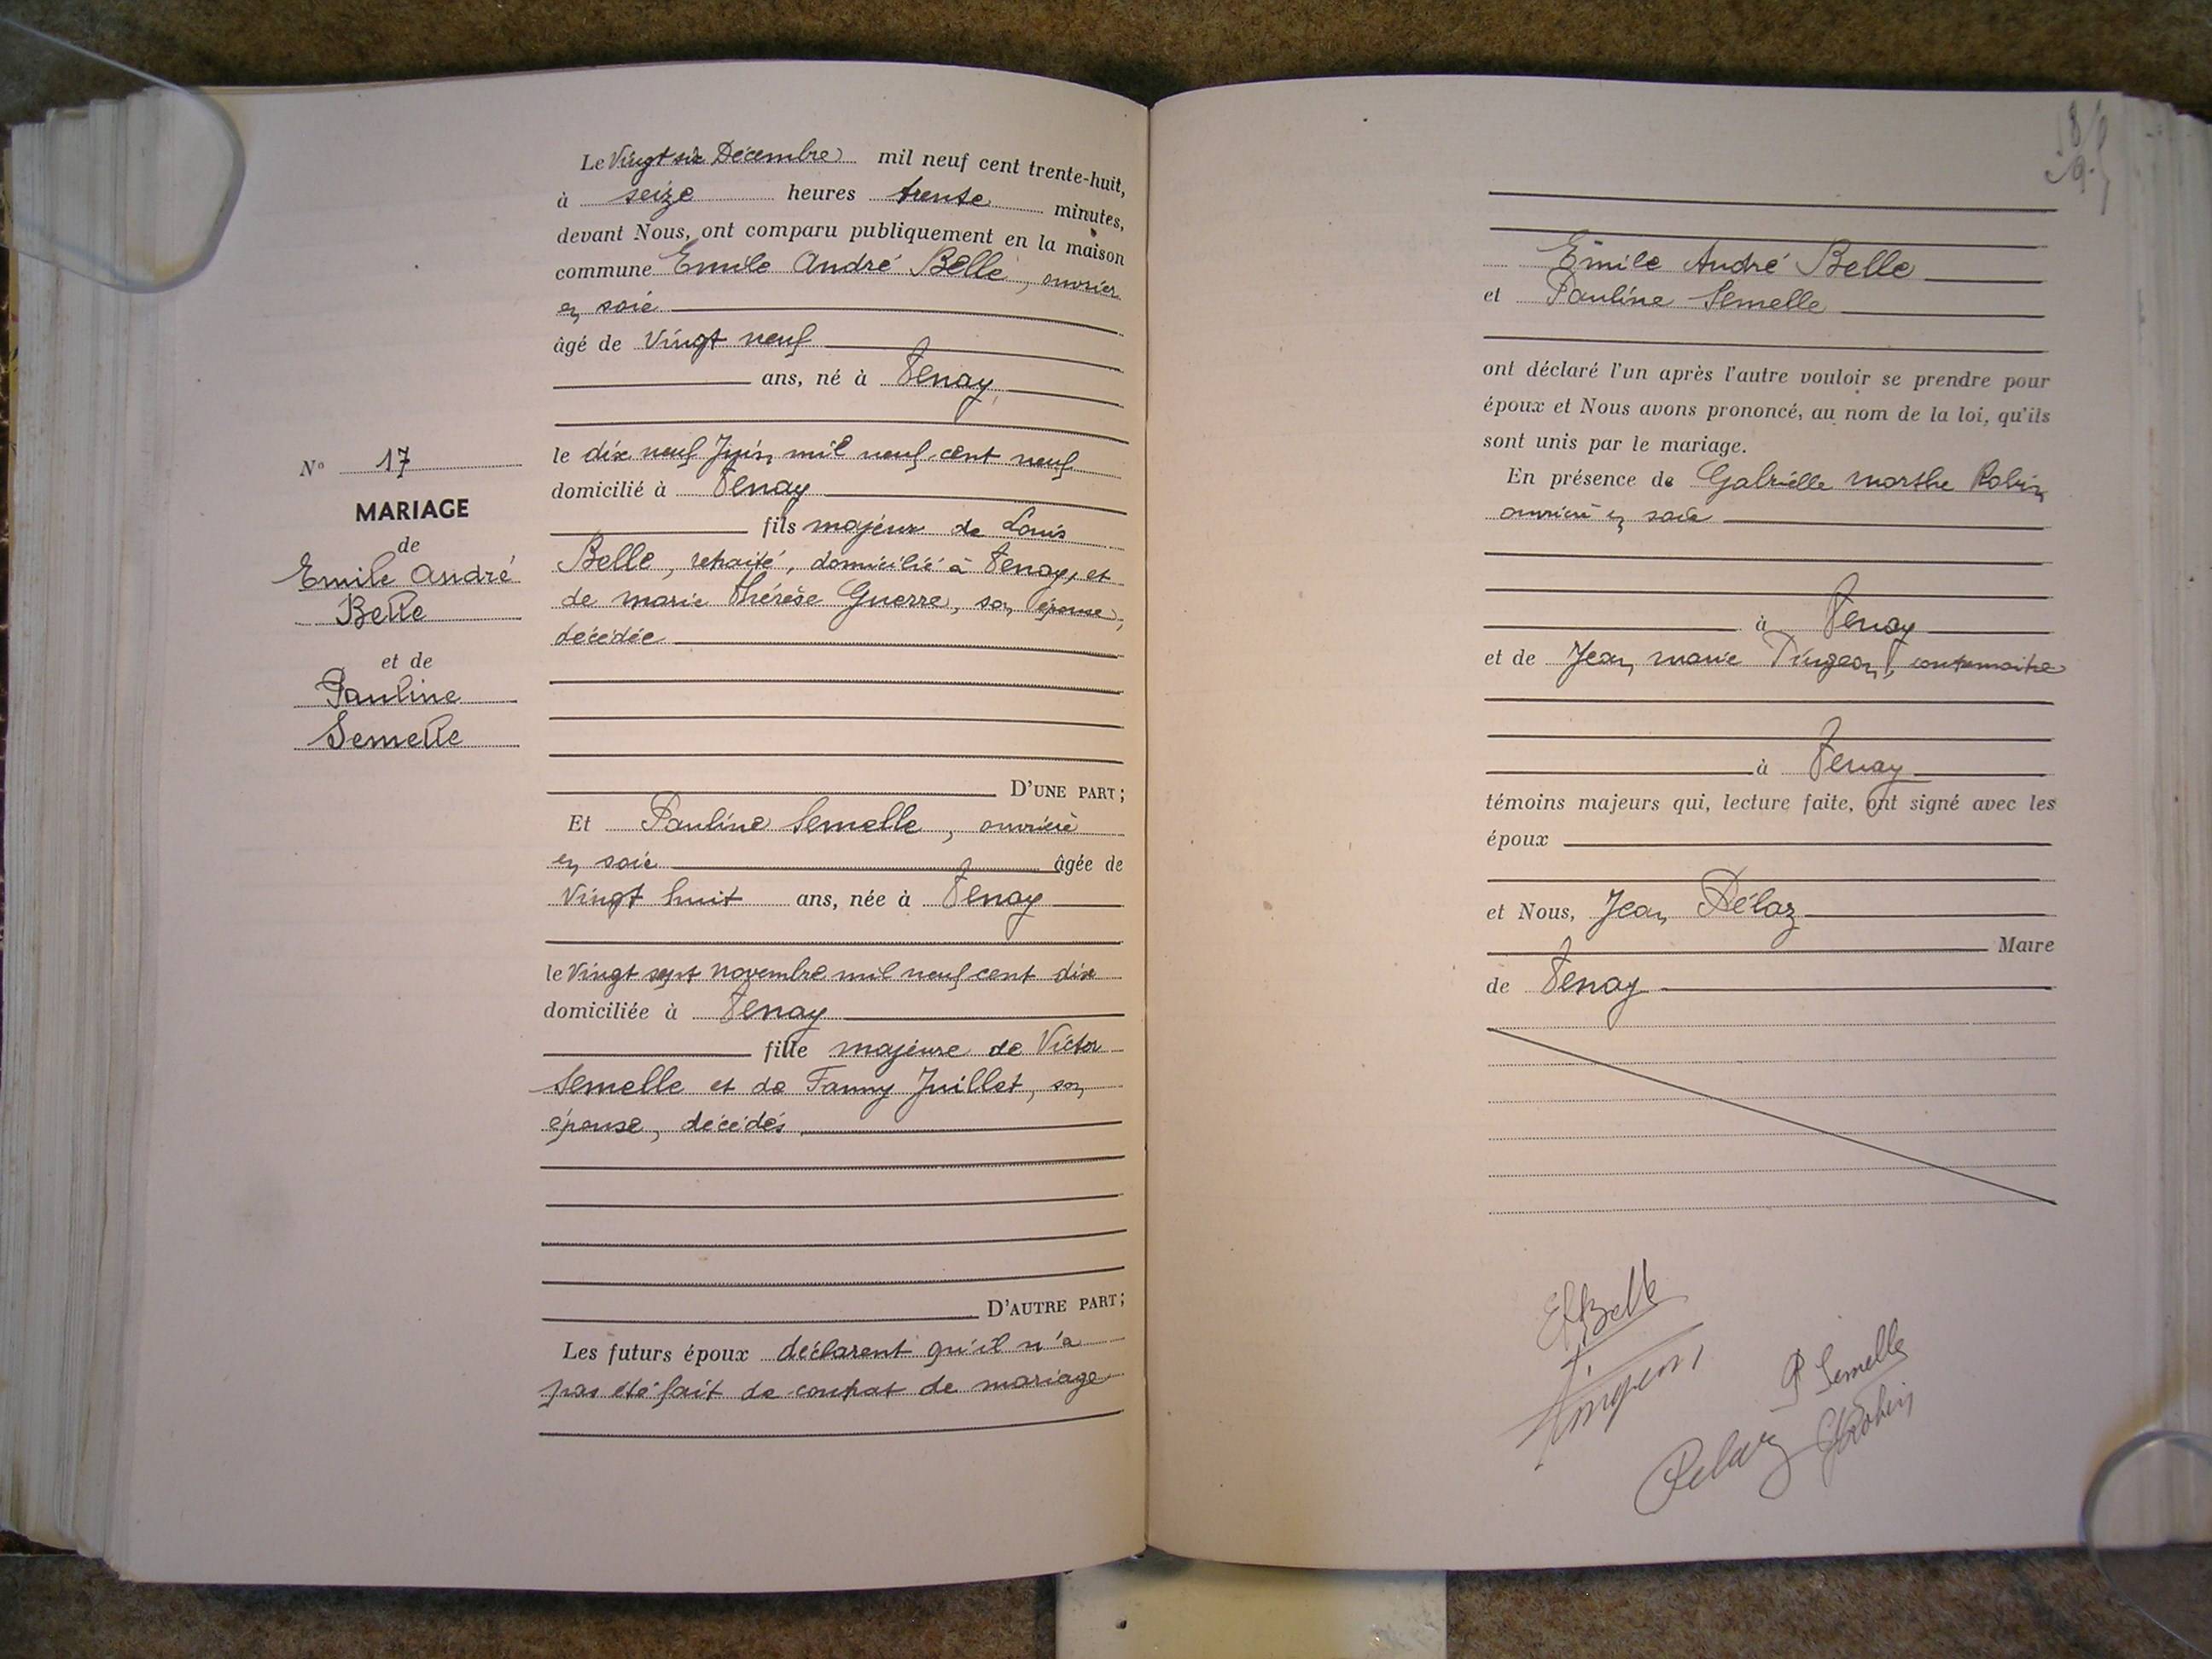 Le Vingt six Décembre mil neuf cent trente-huit,
à seize heures trente minutes,
devant Nous, ont comparu publiquement en la maison
commune Emile André Belle, ouvrier
en soie
âgé de Vingt neuf
ans, né à Tenay
le dix neuf Juin mil neuf cent neuf
domicilié à Tenay
fils majeur de Louis
Belle, retraité, domicilié à Tenay, et
de marie thérèse Guerre, son épouse,
décédée
D'UNE PART;
Et Pauline Semelle, ouvrière
en soie âgée de
Vingt huit ans, née à Tenay
le Vingt sept novembre mil neuf cent dix
domiciliée à Tenay
fille majeure de Victor
Semelle et de Fanny Juillet, son
épouse, décédés
D'AUTRE PART;
Les futurs époux déclarent qu'il n'a
pas été fait de contrat de mariage
No 17
MARIAGE
de
Emile André
Belle
et de
Pauline
Semelle
Emile André Belle
et Pauline Semelle
ont déclaré l'un après l'autre vouloir se prendre pour
époux et Nous avons prononcé, au nom de la loi, qu'ils
sont unis par le mariage.
En présence de Gabrielle marthe Robin
ouvrière en soie
à Tenay
et de Jean marie Pingeon, contremaitre
à Tenay
témoins majeurs qui, lecture faite, ont signé avec les
époux
et Nous, Jean Délaz
Maire
de Tenay
Belle
Pingeon
P Semelle
Delaz
Robin